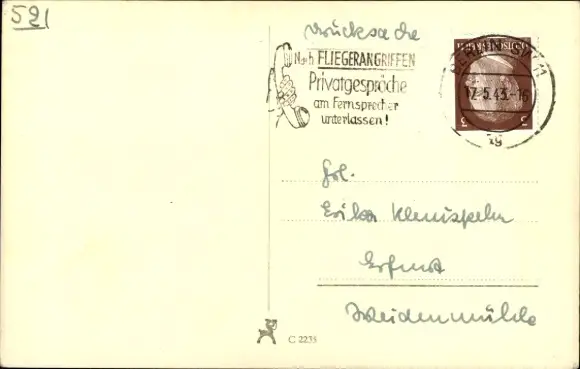 521
Drucksache
Nach FLIEGERANGRIFFEN
Privatgespräche
am Fernsprecher
unterlassen!
BERLIN SW 11
17.5.43.-16
3 3
Frl.
Erika
Erfurt
Weidenmühle
C 2235